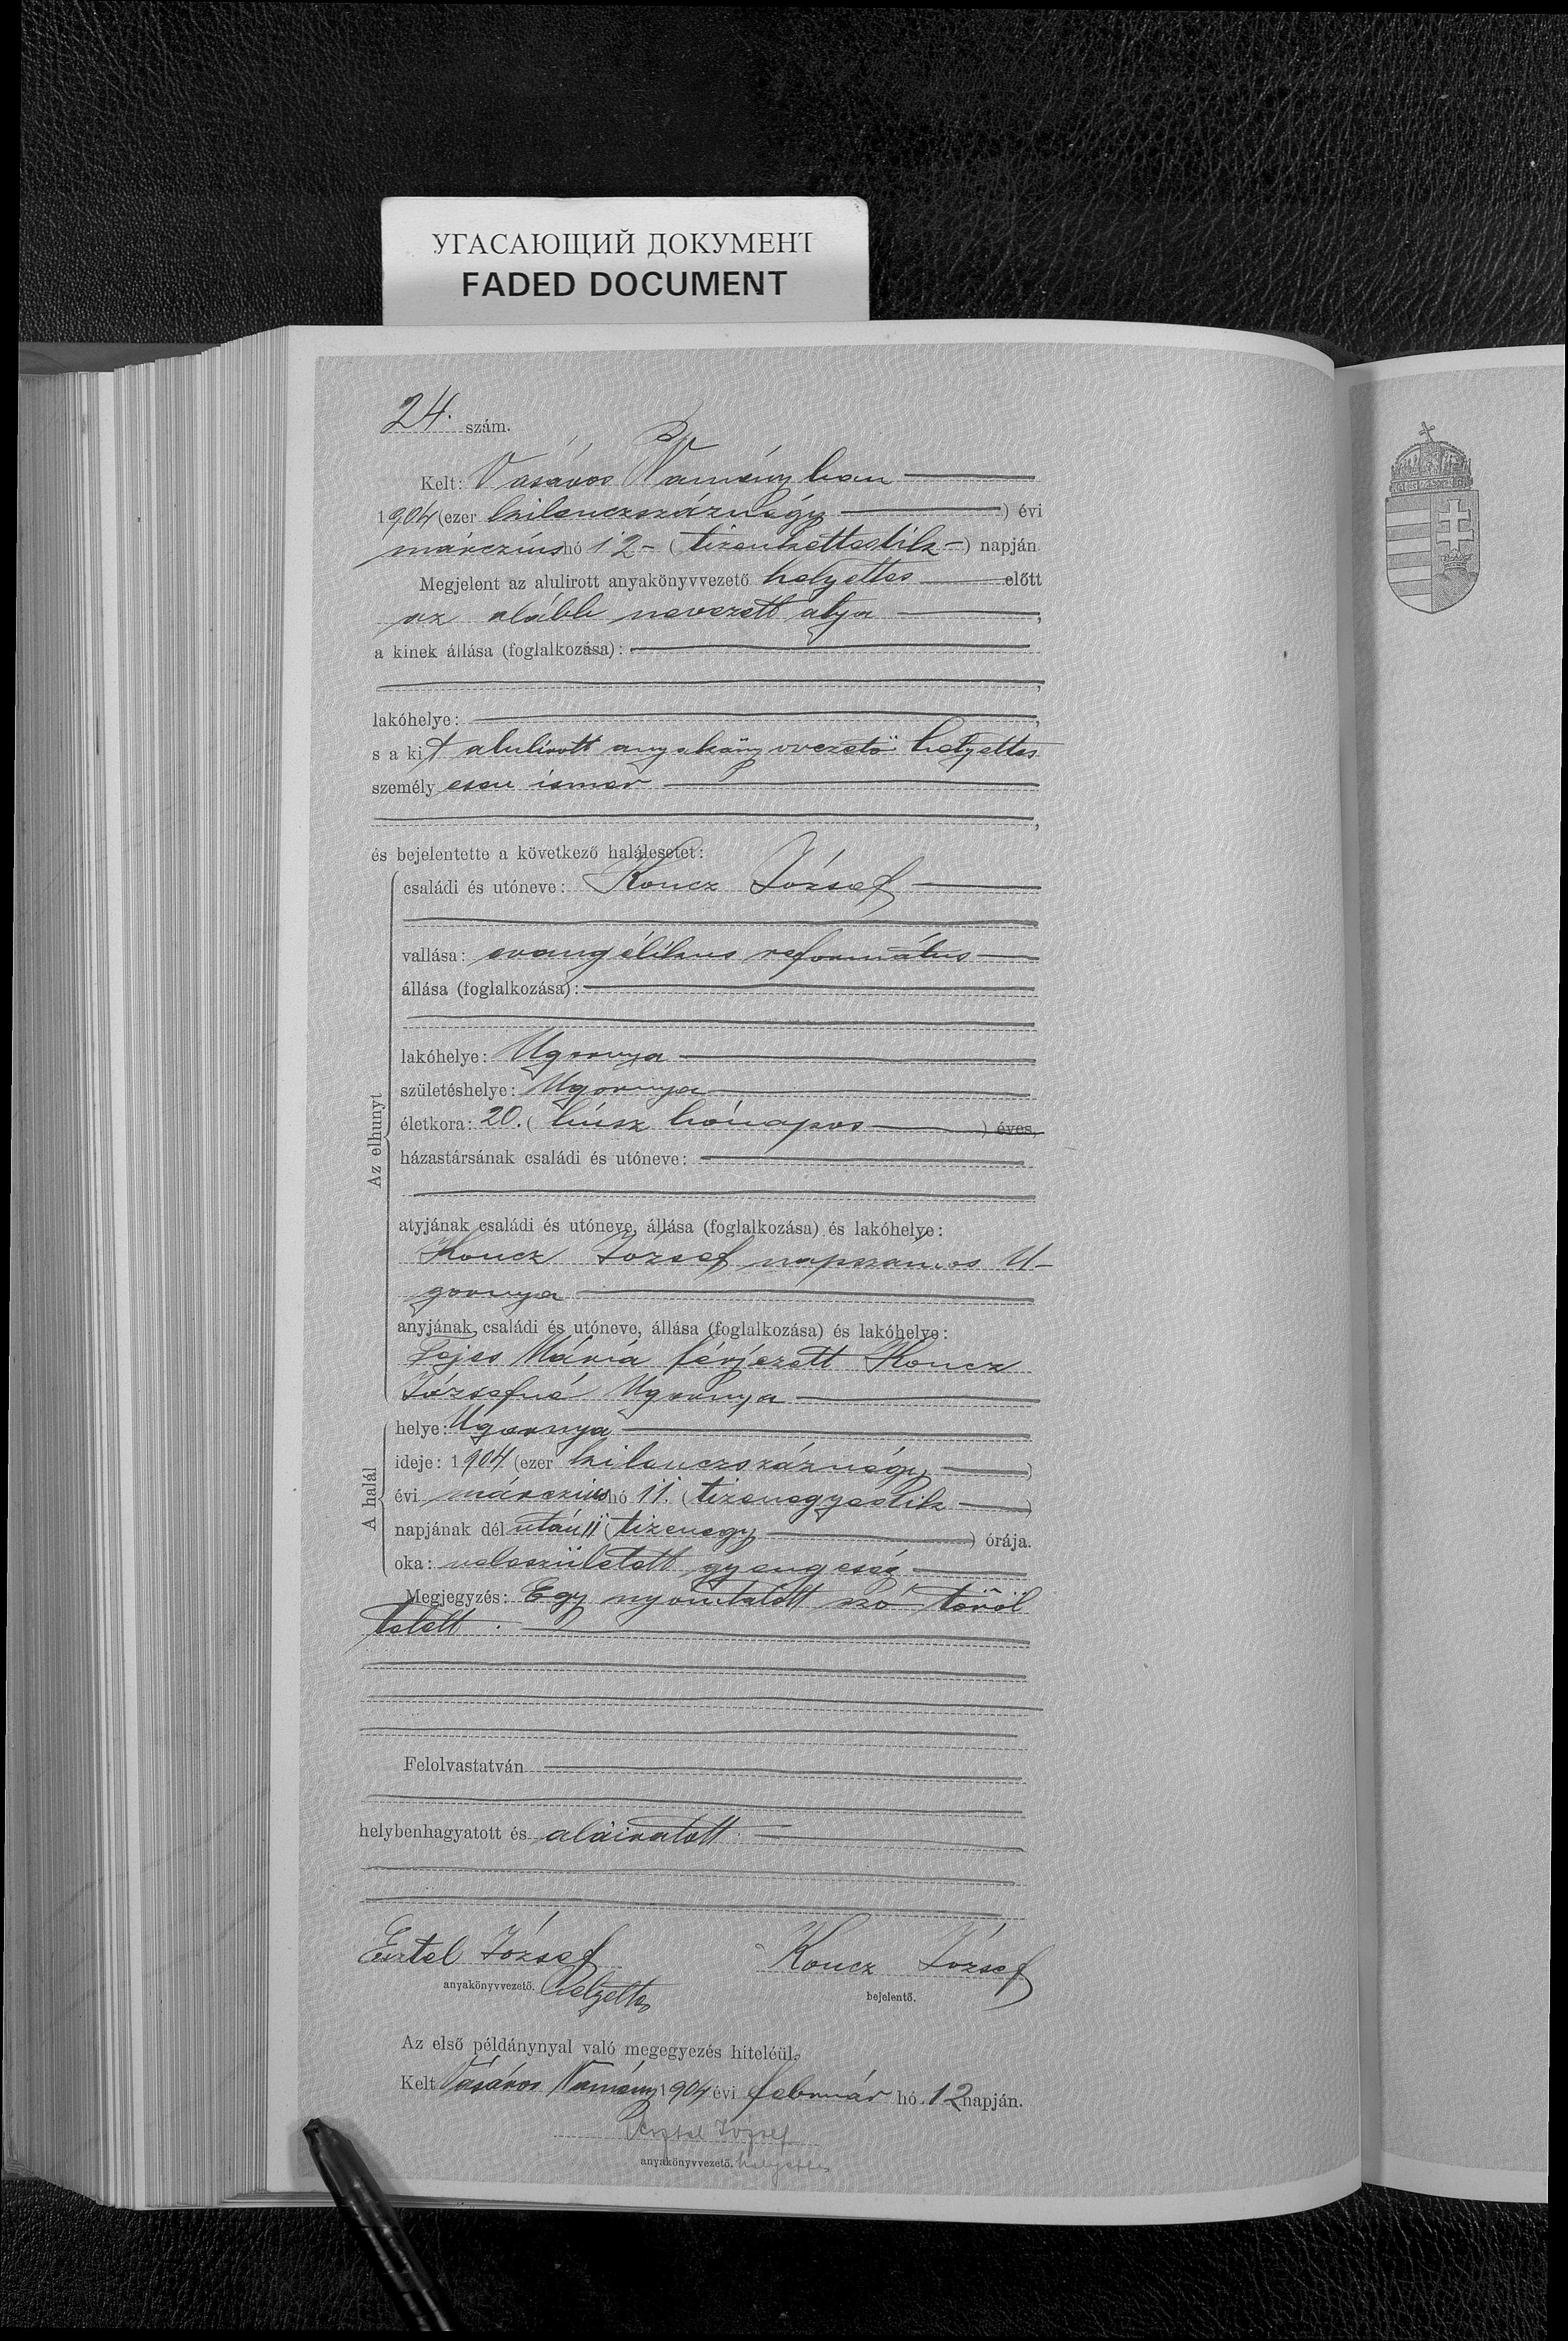 УГАСАЮЩИЙ ДОКУМЕНТ
FADED DOCUMENT
24. szám.
Kelt: Vásáros Naményban
1904 (ezer kilenczszáznégy) évi
márczius hó 12 - (tizenkettedik -) napján
Megjelent az alulírott anyakönyvvezető helyettes előtt
az alább nevezett atyja,
a kinek állása (foglalkozása):
lakóhelye:
s a kit alulirott anyakönyvvezető helyettes
személyesen ismer
és bejelentette a következő halálesetet:
Az elhunyt
családi és utóneve: Koncz József
vallása: evangélikus református
állása (foglalkozása):
lakóhelye: Ugornya
születéshelye: Ugornya
életkora: 20. (húsz hónapos) éves,
házastársának családi és utóneve:
atyjának családi és utóneve, állása (foglalkozása) és lakóhelye:
Koncz József napszámos U-
gornya
anyjának családi és utóneve, állása (foglalkozása) és lakóhelye:
Fejes Mária férjezett Koncz
Józsefné Ugornya
A halál
helye: Ugornya
ideje: 1904 (ezer kilenczszáznégy)
évi márczius hó 11. (tizenegyedik)
napjának dél után 11 (tizenegy) órája.
oka: veleszületett gyengeség
Megjegyzés: Egy nyomtatott szó töröl
tetett.
Felolvastatván
helybenhagyatott és aláiratott
Esztel József
anyakönyvvezető. helyettes
Koncz József
bejelentő.
Az első példánynyal való megegyezés hiteléül.
Kelt Vásáros Namény 1904 évi február hó 12 napján.
Esztel József
anyakönyvvezető. helyettes